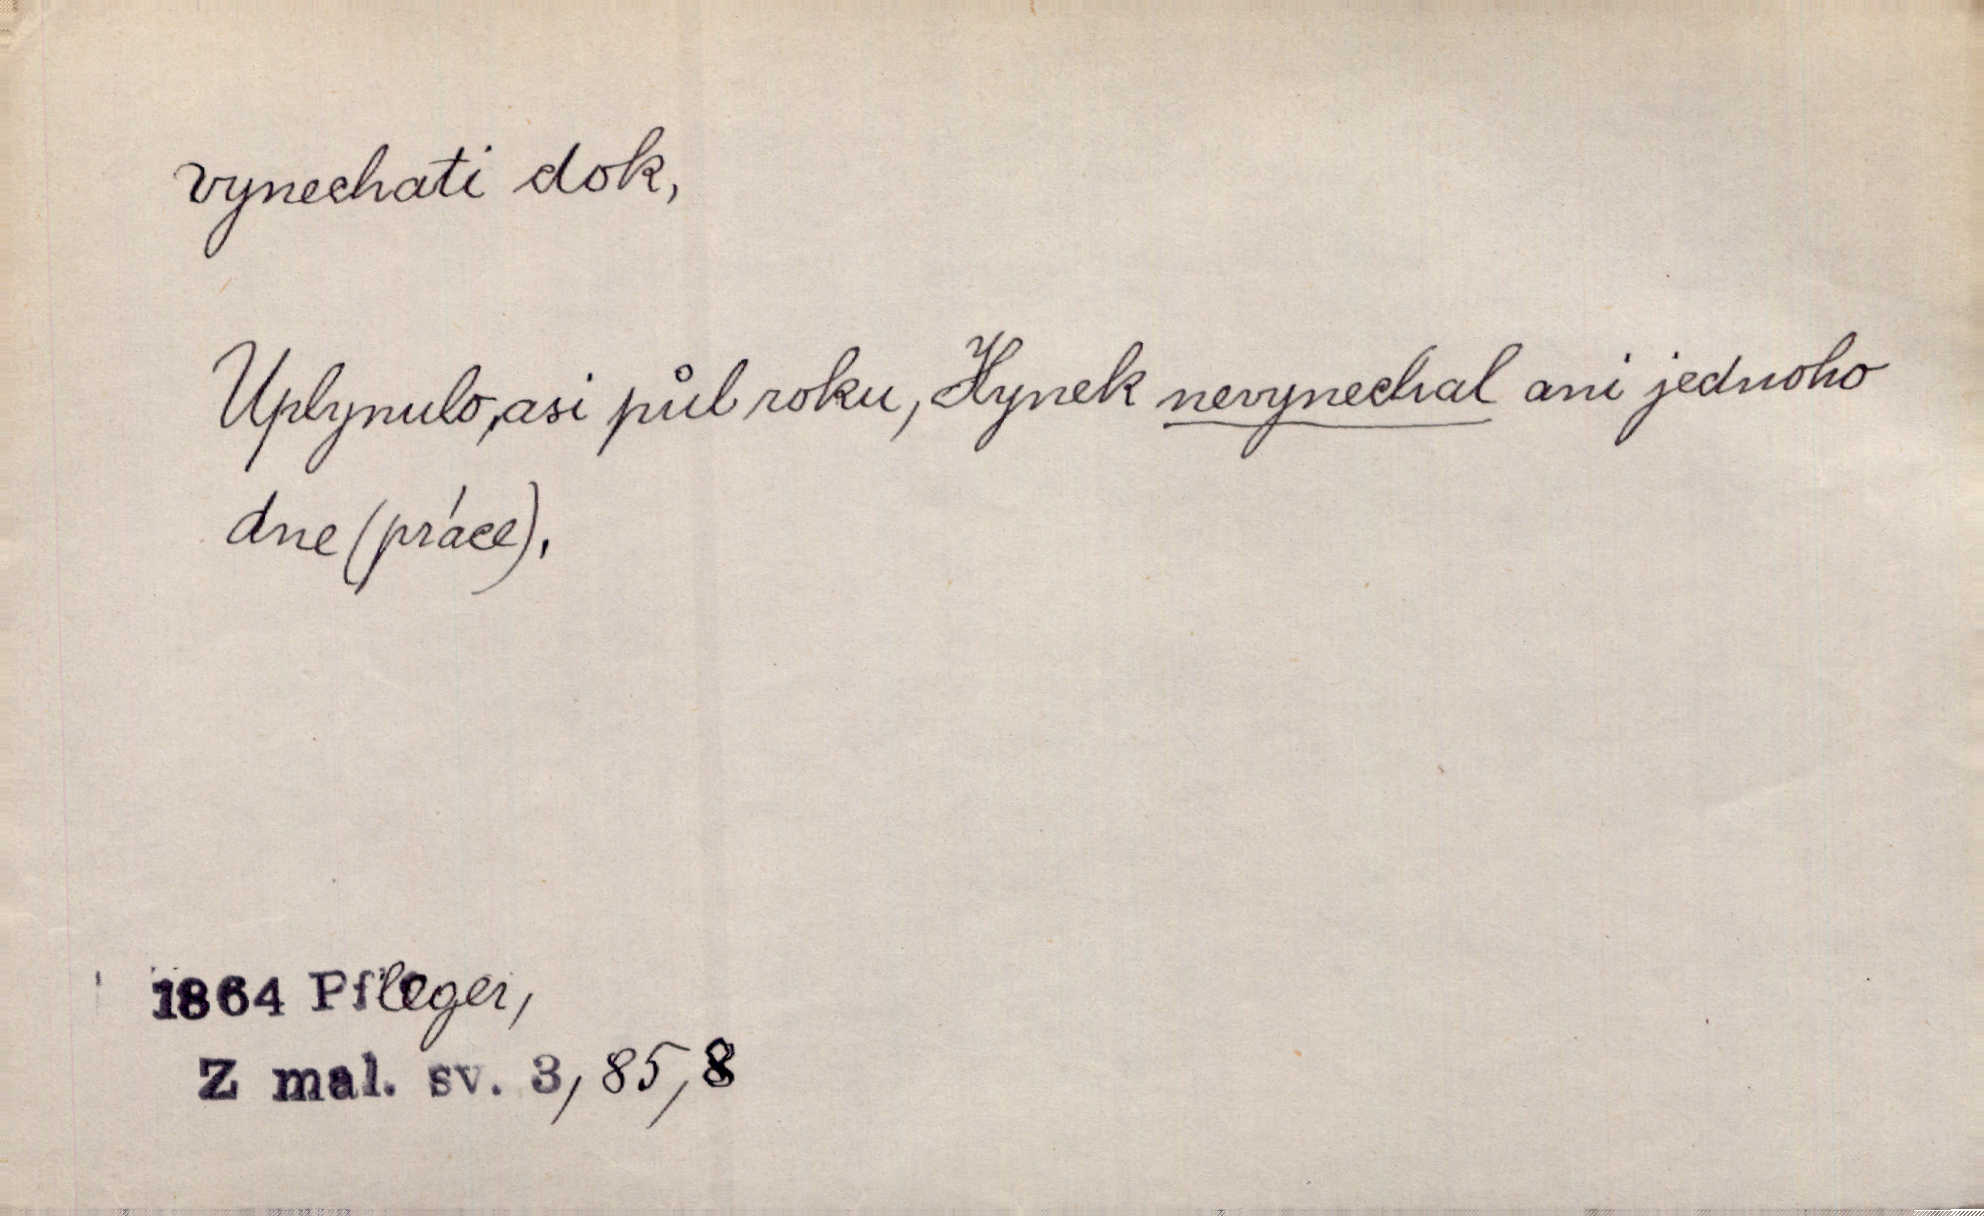 vynechati dok,
Uplynulo, asi půl roku, Hynek nevynechal ani jednoho
dne (práce).
1864 Pfleger,
Z mal. sv. 3, 85, 8